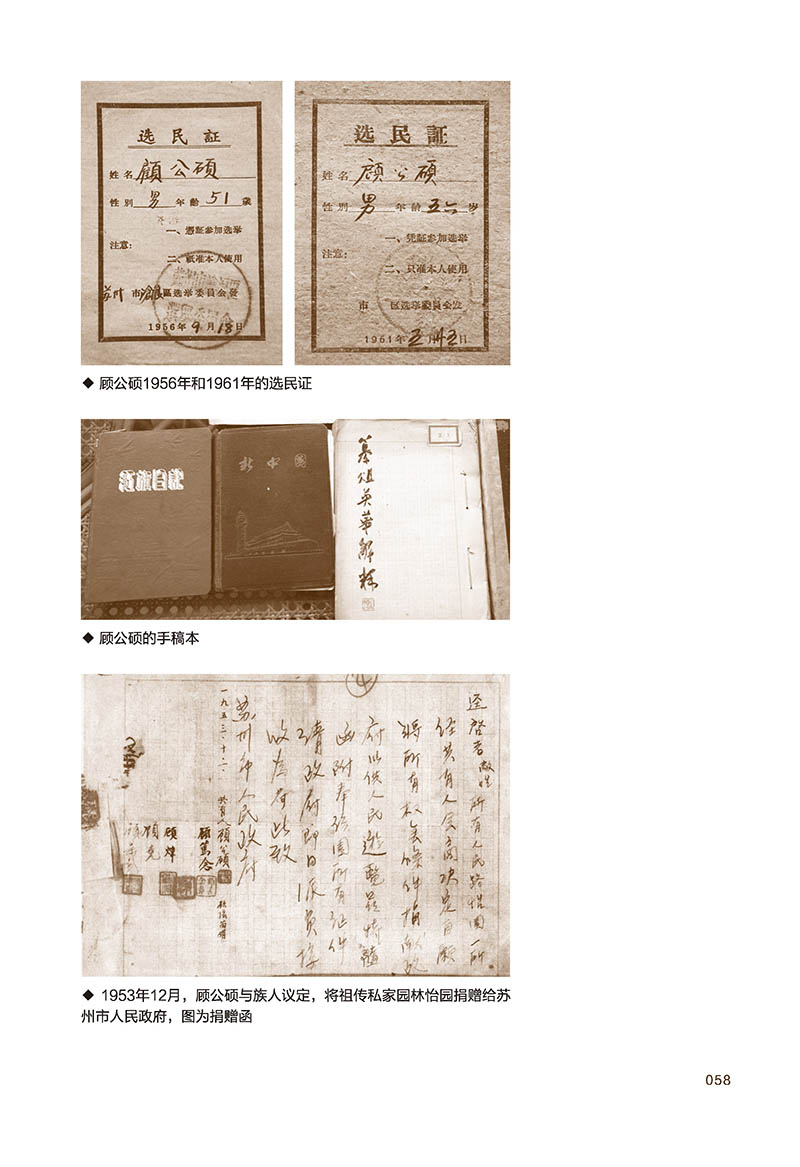 选民証
姓名 顧公碩
性別 男 年齡 51 歲
注意：
一、憑証参加选举
二、祇准本人使用
苏州 市 滄浪 區选举委員会發
1956年9月18日
选民証
姓名 顾公碩
性別 男 年龄 五六 岁
注意：
一、凭証参加选举
二、只准本人使用
市 区选举委員会发
1961年
◆ 顾公硕1956年和1961年的选民证
红旗日記
新中國
纂组英華解释
◆ 顾公硕的手稿本
④
逕啓者敝姓所有人民路怡园一所
经共有人会商决定自願
将所有权無條件捐献政
府以供人民遊覽兹特
函附奉该園所有证件
请政府即日派員接
收为荷此致
苏州市人民政府
一九五三·十二·
顧公碩
顧篤念
顧煒
◆ 1953年12月，顾公硕与族人议定，将祖传私家园林怡园捐赠给苏
州市人民政府，图为捐赠函
058